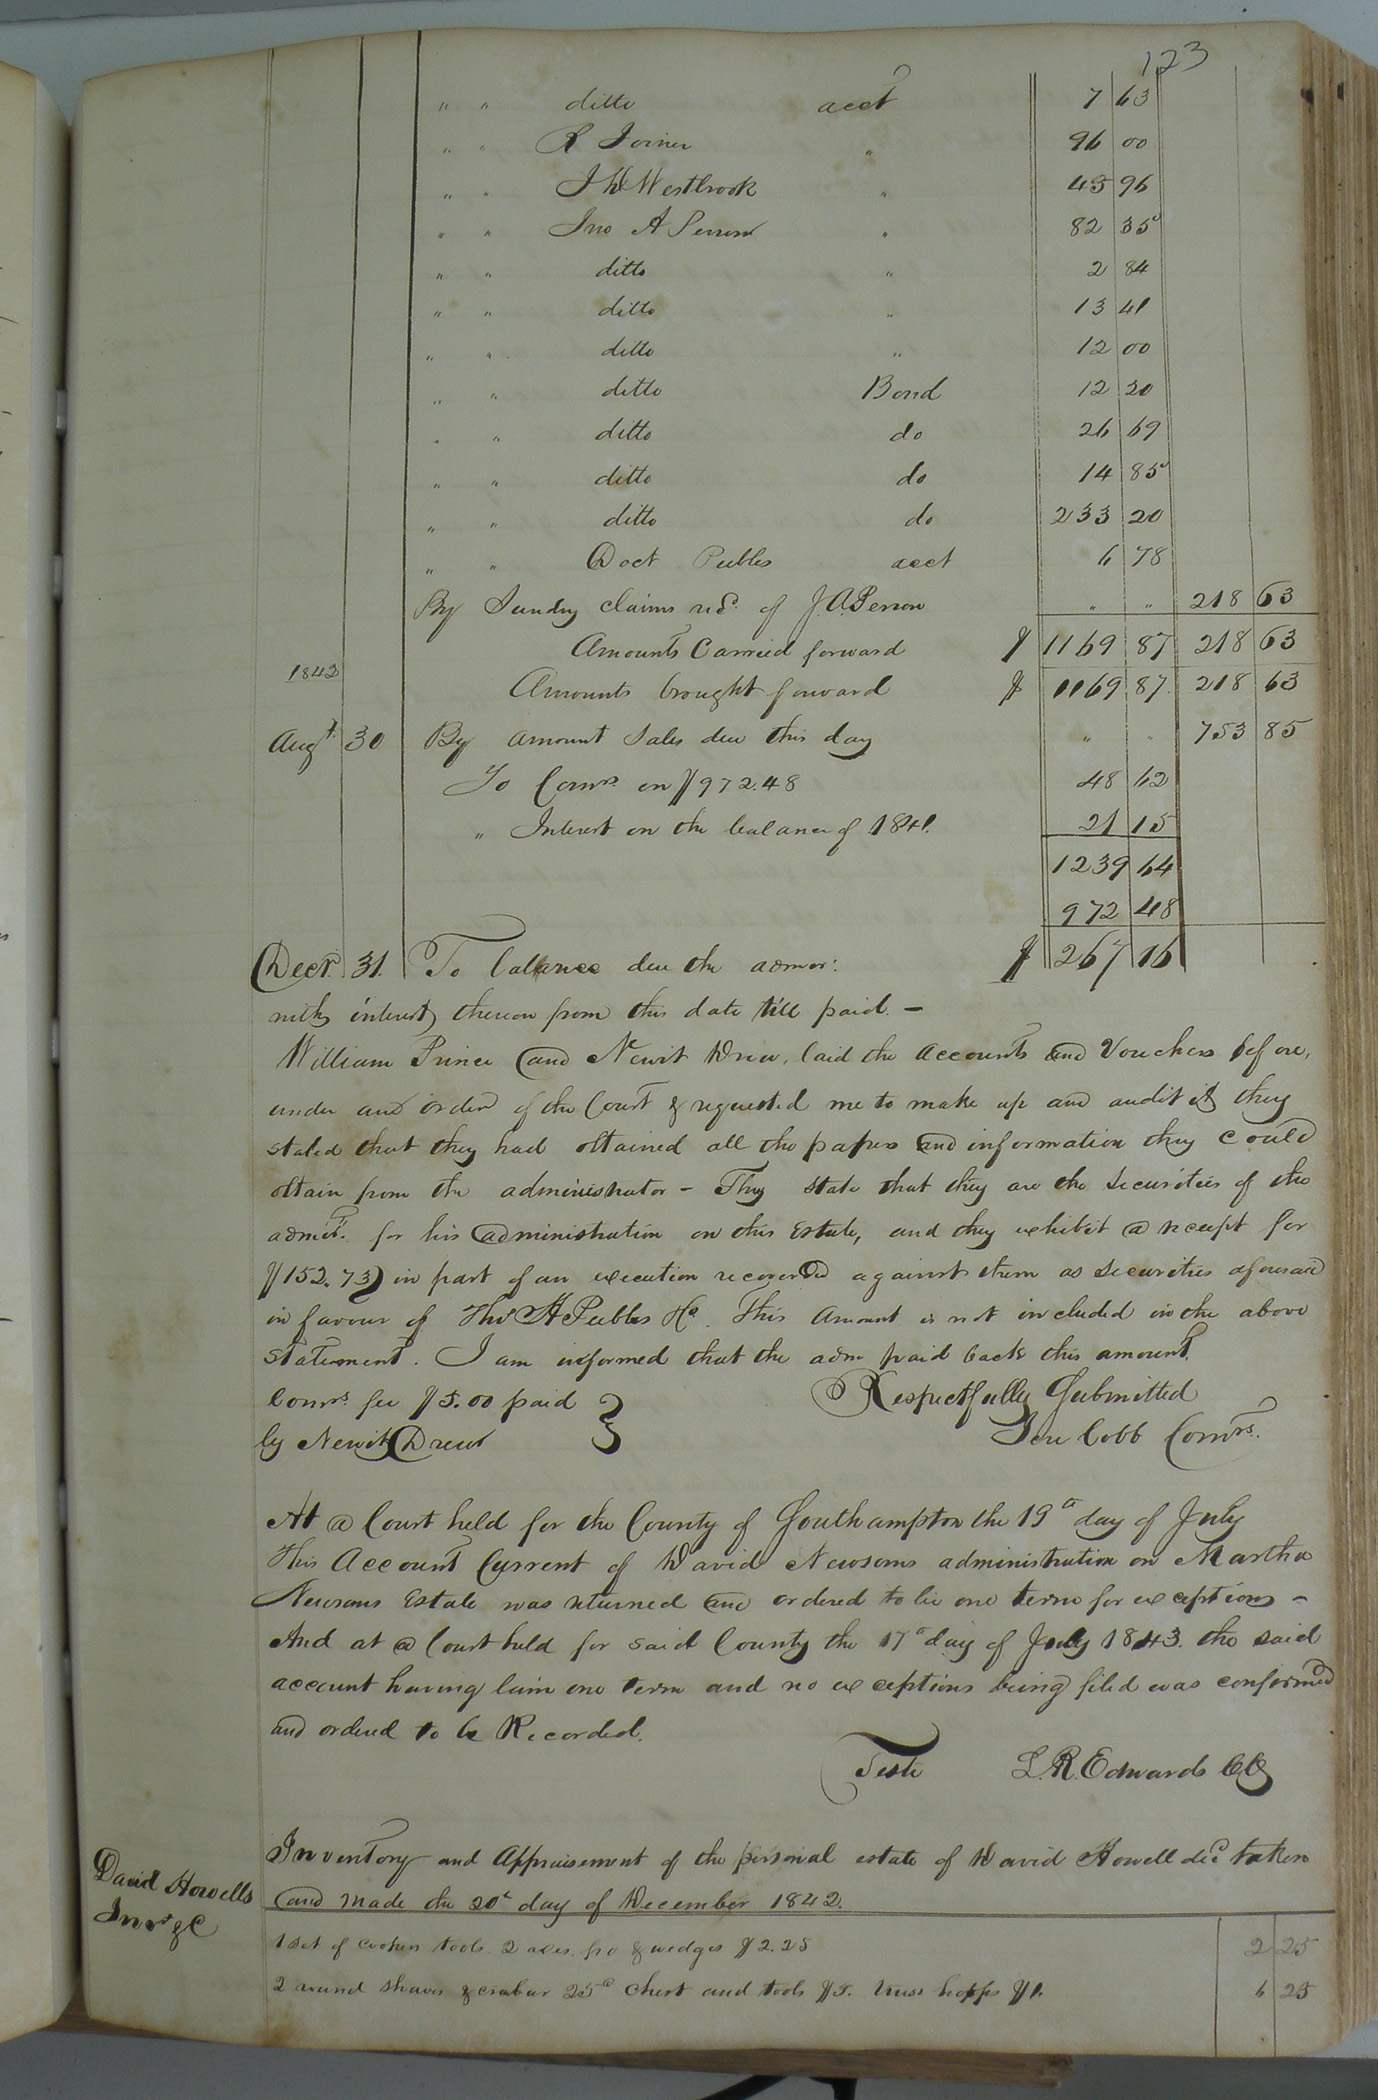 123
" " ditto acct 7 63
" " R Joiner " 96 00
" " J W Westbrook " 45 96
" " Jno A Person " 82 35
" " ditto " 2 84
" " ditto " 13 41
" " ditto " 12 00
" " ditto Bond 12 20
" " ditto do 26 69
" " ditto do 14 85
" " ditto do 233 20
" " Doct Peebles acct 6 78
By Sundry claims recd. of J. A. Person " " 218 63
Amounts Carried forward $ 1169 87 218 63
1842 Amounts brought forward $ 1169 87 218 63
Augt. 30 By amount Sales due this day " " 753 85
To Coms. on $972.48 48 62
" Interest on the balance of 1841. 21 15
1239 64
972 48
Decr. 31. To ballance due the admor: $ 267 16
with interest thereon from this date till paid. —
William Prince and Newit Drew, laid the accounts and Vouchers before,
under and order of the Court & requested me to make up and audit it they
stated that they had obtained all the papers and information they could
obtain from the administrator - They state that they are the securities of the
admor. for his administration on this Estate, and they exhibit a receipt for
$152.73 in part of an execution recovered against them as securities aforesaid
in favour of Thos H Peebles &c. This amount is not included in the above
statement. I am informed that the adm paid back this amount.
Comrs. fee $5.00 paid } Respectfully Submitted
by Newit Drew Jere Cobb Comrs.
At a Court held for the County of Southampton the 19th day of July
This Account Current of David Newsoms administration on Martha
Newsoms Estate was returned and ordered to lie one term for exceptions —
And at a Court held for said County the 17th day of July 1843. the said
account having lain one term and no exceptions being filed was confirmed
and ordered to be Recorded.
Teste L. R. Edwards CC
David Howells
Invt &C
Inventory and Appraisement of the personal estate of David Howell decd taken
and made the 20th day of December 1842.
1 set of coopers tools 2 axes, fro & wedges $2.25 2 25
2 round shaves & crabar 25c Chest and tools $5. truss hopps $1. 6 25